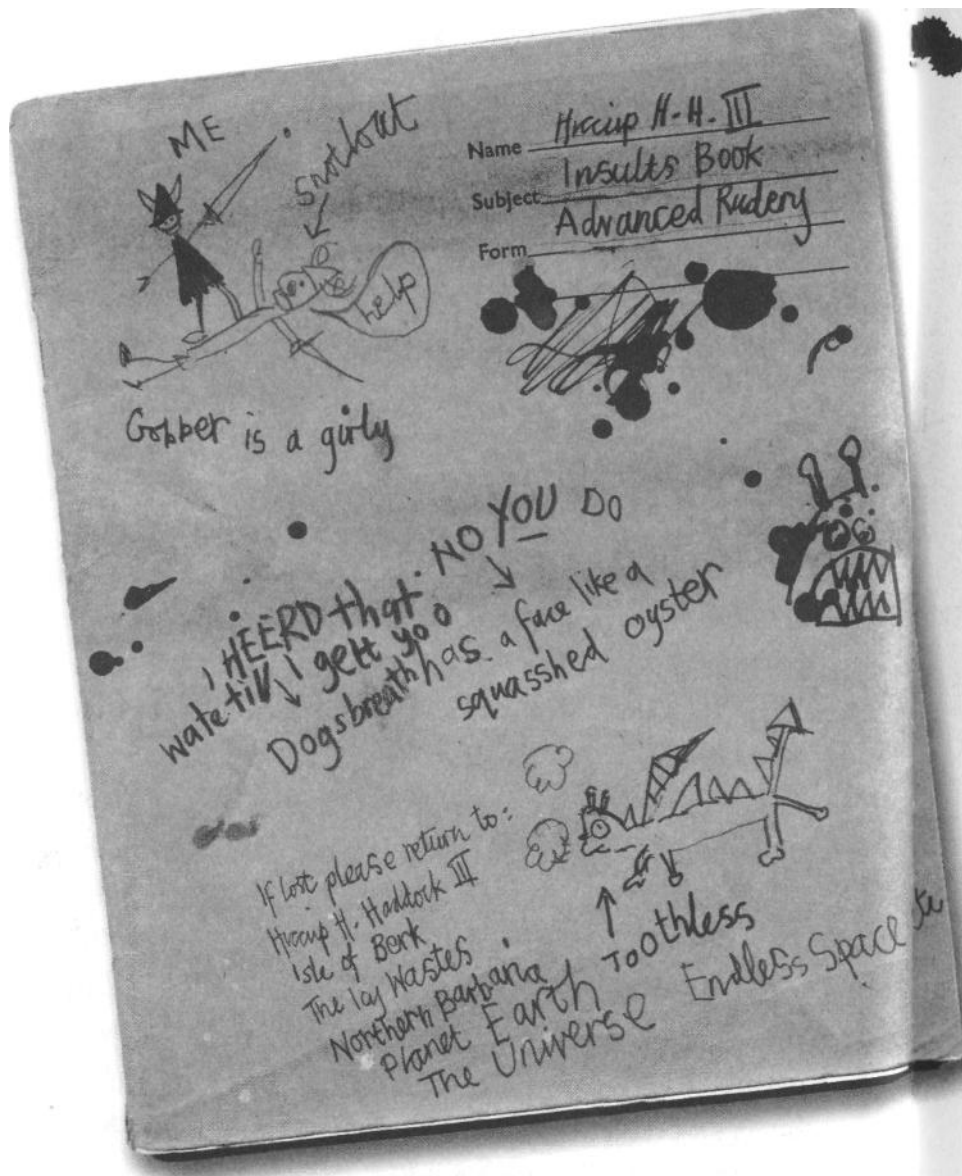 ME
Snotlout
help
Name Hiccup H.H. III
Subject Insults Book
Form Advanced Rudery
Gobber is a girly
NO YOU DO
I HEERD that.
wate till I gett yoo
Dogsbreath has a face like a
squasshed oyster
If lost please return to:
Hiccup H. Haddock III
Isle of Berk
The Icy Wastes
Northern Barbaria
Planet Earth
The Universe
Endless Space
Toothless